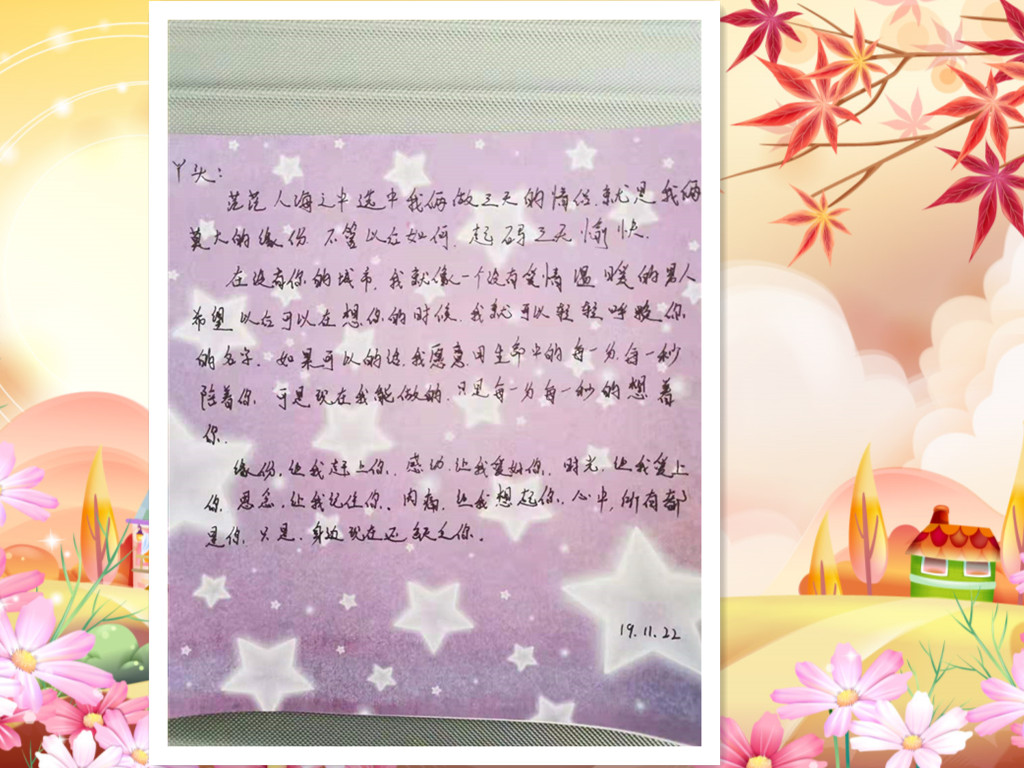 丫头：
茫茫人海之中选中我俩做三天的情侣，就是我俩
莫大的缘份，不管以后如何，起码三天愉快.
在没有你的城市，我就像一个没有爱情温暖的男人
希望以后可以在想你的时候，我就可以轻轻呼唤你
的名字，如果可以的话，我愿意用生命中的每一分，每一秒
陪着你，可是现在我能做的，只是每一分每一秒的想着
你.
缘份，让我赶上你，感动，让我爱你，时光，让我爱上
你，思念，让我记住你，内，让我想起你，心中，所有都
是你，只是，身边现在还缺乏你。
19.11.22